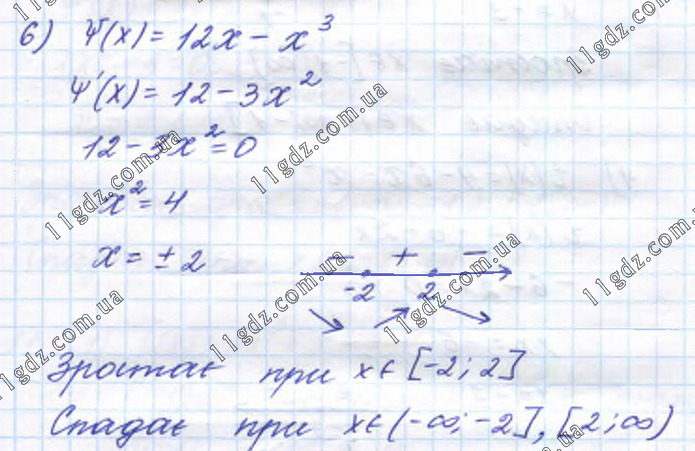 6) Ψ(x) = 12x - x³
Ψ'(x) = 12 - 3x²
12 - 3x² = 0
x² = 4
x = ± 2
- + -
-2 2
Зростає при x ∈ [-2; 2]
Спадає при x ∈ (-∞; -2], [2; ∞)
11gdz.com.ua
11gdz.com.ua
11gdz.com.ua
11gdz.com.ua
11gdz.com.ua
11gdz.com.ua
11gdz.com.ua
11gdz.com.ua